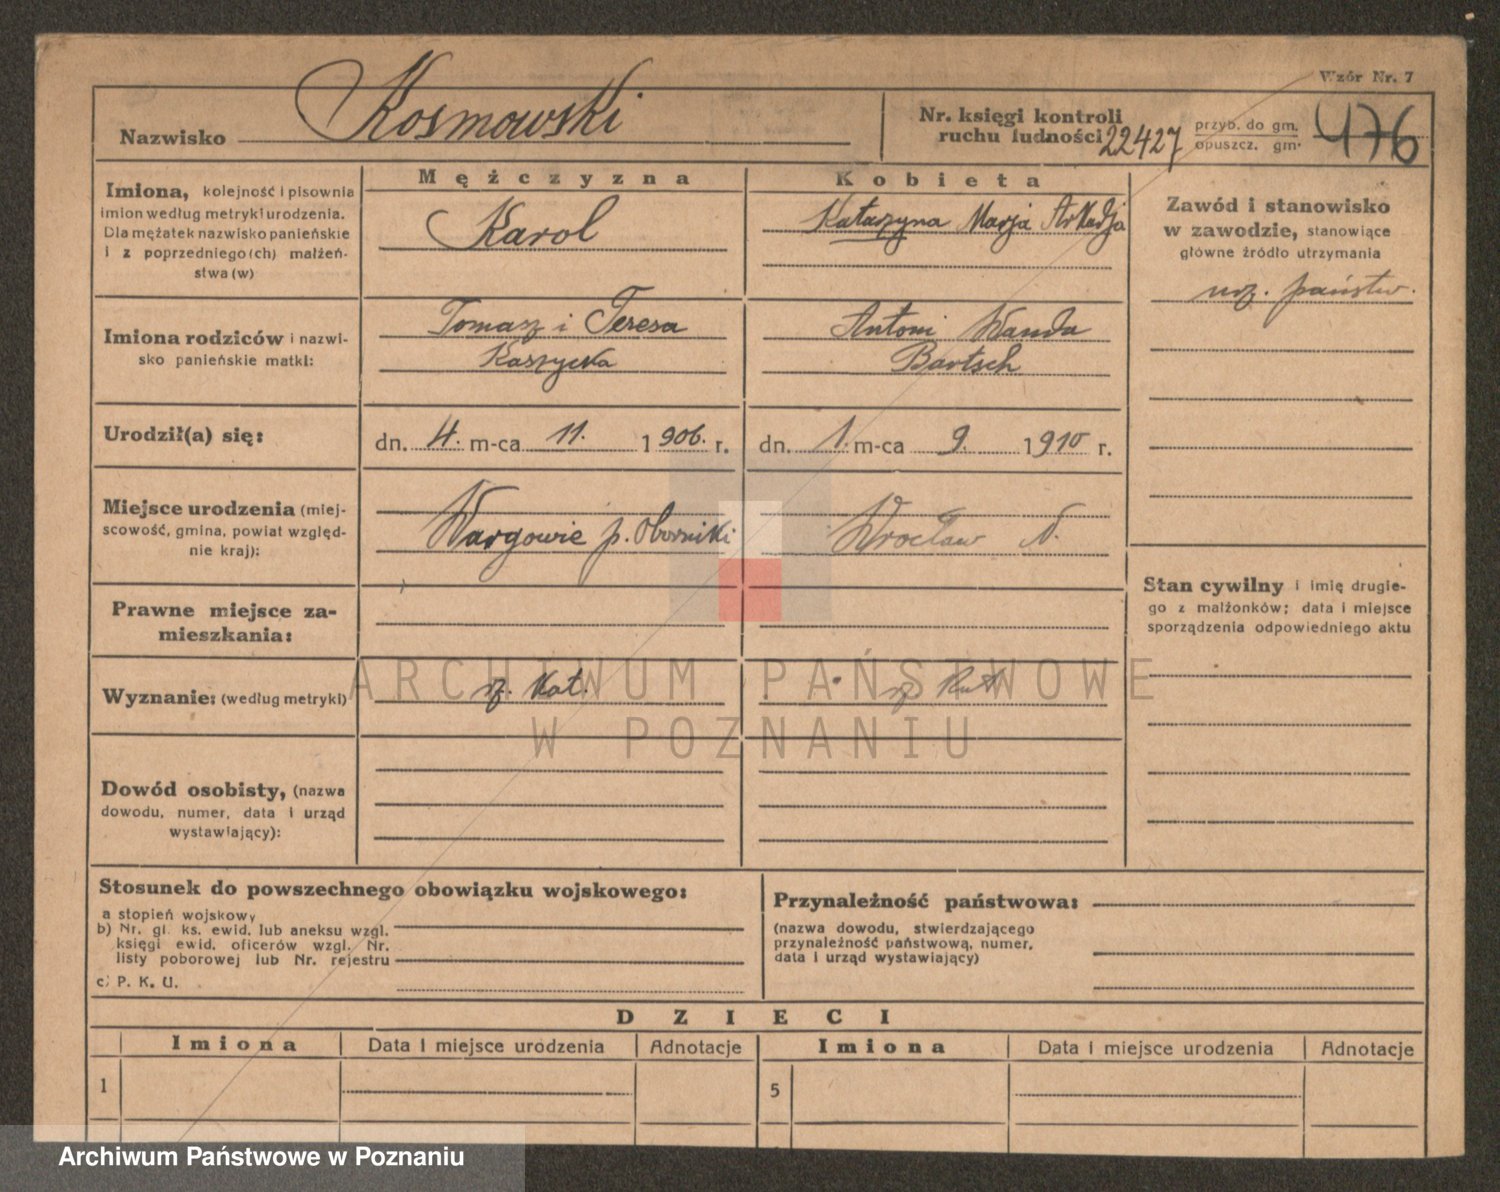 Wzór Nr. 7
Nazwisko Kosmowski
Nr. księgi kontroli
ruchu ludności 22427
przyb. do gm.
opuszcz. gm.
476
Mężczyzna
Kobieta
Imiona, kolejność i pisownia
imion według metryki urodzenia.
Dla mężatek nazwisko panieńskie
i z poprzedniego(ch) małżeń-
stwa(w)
Karol
Katarzyna Marja Arkadja
Zawód i stanowisko
w zawodzie, stanowiące
główne źródło utrzymania
urz. państw.
Imiona rodziców i nazwi-
sko panieńskie matki:
Tomasz i Teresa
Kaszycka
Antoni Wanda
Bartsch
Urodził(a) się:
dn. 4. m-ca 11. 1906. r.
dn. 1. m-ca 9. 1910 r.
Miejsce urodzenia (miej-
scowość, gmina, powiat względ-
nie kraj):
Wargowie p. Oborniki
Wrocław N.
Prawne miejsce za-
mieszkania:
Stan cywilny i imię drugie-
go z małżonków; data i miejsce
sporządzenia odpowiedniego aktu
Wyznanie: (według metryki)
rz. kat.
rz. kat
ARCHIWUM PAŃSTWOWE
W POZNANIU
Dowód osobisty, (nazwa
dowodu, numer, data i urząd
wystawiający):
Stosunek do powszechnego obowiązku wojskowego:
a stopień wojskowy
b) Nr. gł. ks. ewid. lub aneksu wzgl.
księgi ewid. oficerów wzgl. Nr.
listy poborowej lub Nr. rejestru
c) P. K. U.
Przynależność państwowa:
(nazwa dowodu, stwierdzającego
przynależność państwową, numer,
data i urząd wystawiający)
DZIECI
Imiona
Data i miejsce urodzenia
Adnotacje
Imiona
Data i miejsce urodzenia
Adnotacje
1
5
Archiwum Państwowe w Poznaniu